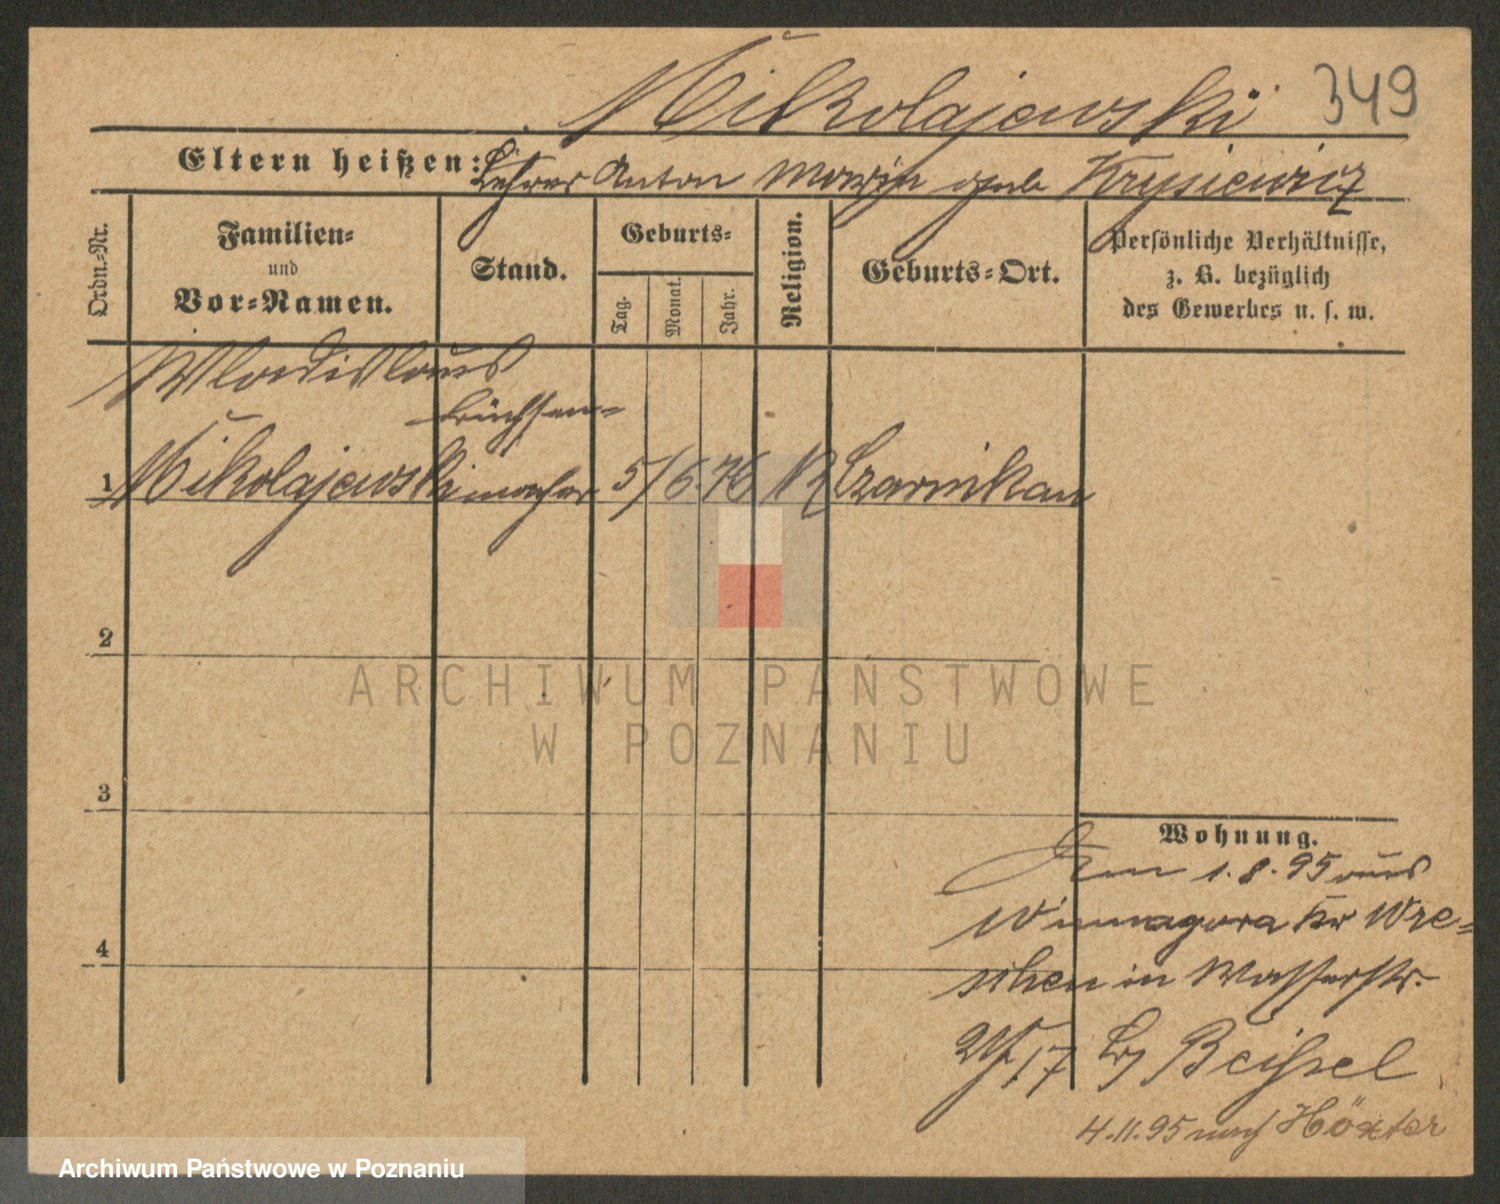 Mikolajewski 349
Eltern heißen: Lehrer Anton Maria geb Krysiewicz
Ordn.-Nr.
Familien-
und
Vor-Namen.
Stand.
Geburts-
Tag.
Monat.
Jahr.
Religion.
Geburts-Ort.
Persönliche Verhältnisse,
z. B. bezüglich
des Gewerbes u. s. w.
Wladislaus
Büchsen-
1 Mikolajewski macher 5/6.76 K Czarnikau
2
ARCHIWUM PAŃSTWOWE
W POZNANIU
3
Wohnung.
Am 1.8.95 aus
Winnagora Kr Wre-
schen in Wasserstr.
17 bj Beissel
4
4.11.95 nach Höxter
Archiwum Państwowe w Poznaniu